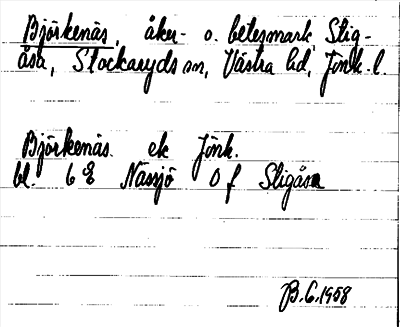 Björkenäs, åker- o. betesmark, Slig-
åsa, Stockaryds sn, Västra hd, Jönk. l.
Björkenäs. ek Jönk.
bl. 6 E Nässjö O f Sligåsa
B. G. 1958